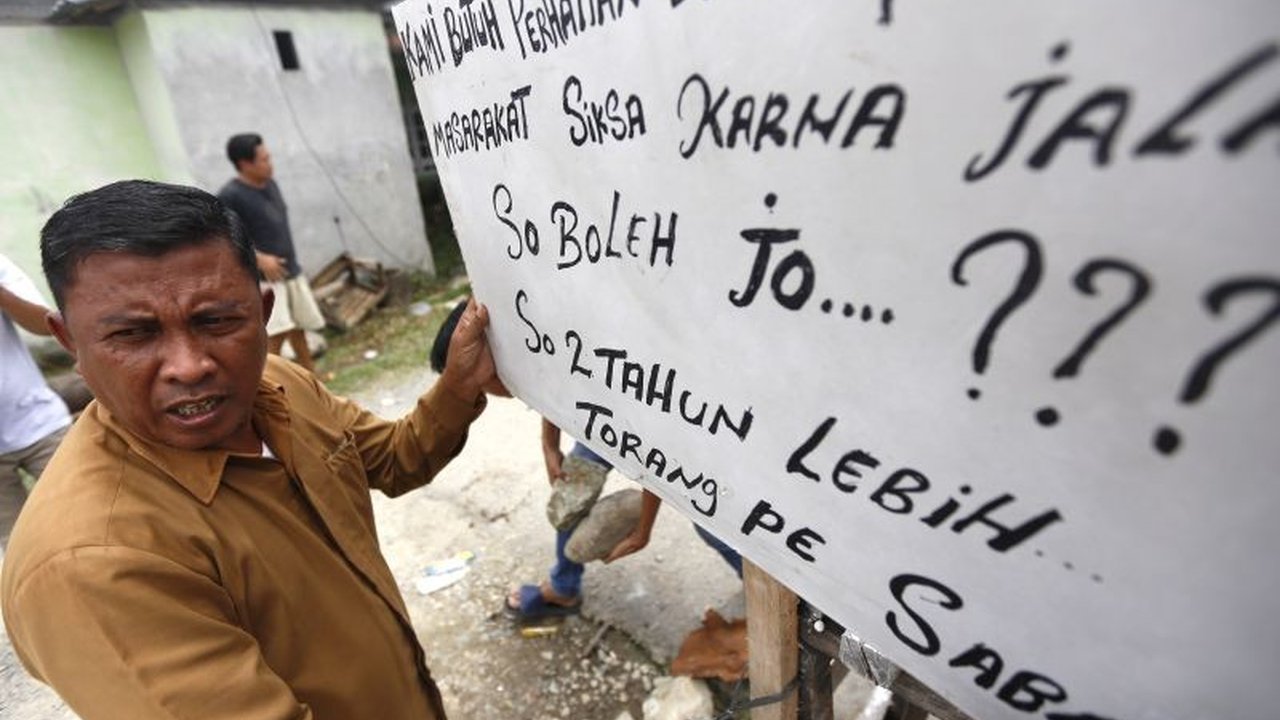 KAMI BUTUH PERHATIAN
MASARAKAT SIKSA KARNA JALA
SO BOLEH JO.... ???
SO 2 TAHUN LEBIH....
TORANG PE SABA